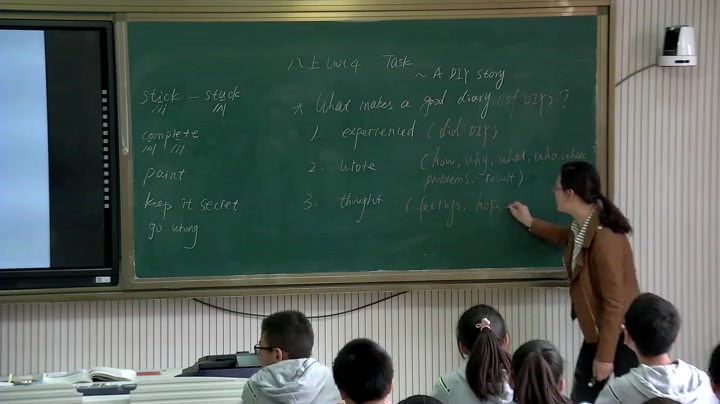 八上 Unit 4 Task
~ A DIY story
stick - stuck
/ɪ/ /ʌ/
complete
/ə/ /iː/
paint
keep it secret
go wrong
* What makes a good diary (of DIY)?
1. experienced (did DIY)
2. wrote (how, why, what, who, where
problems, result)
3. thought. (feelings, hope